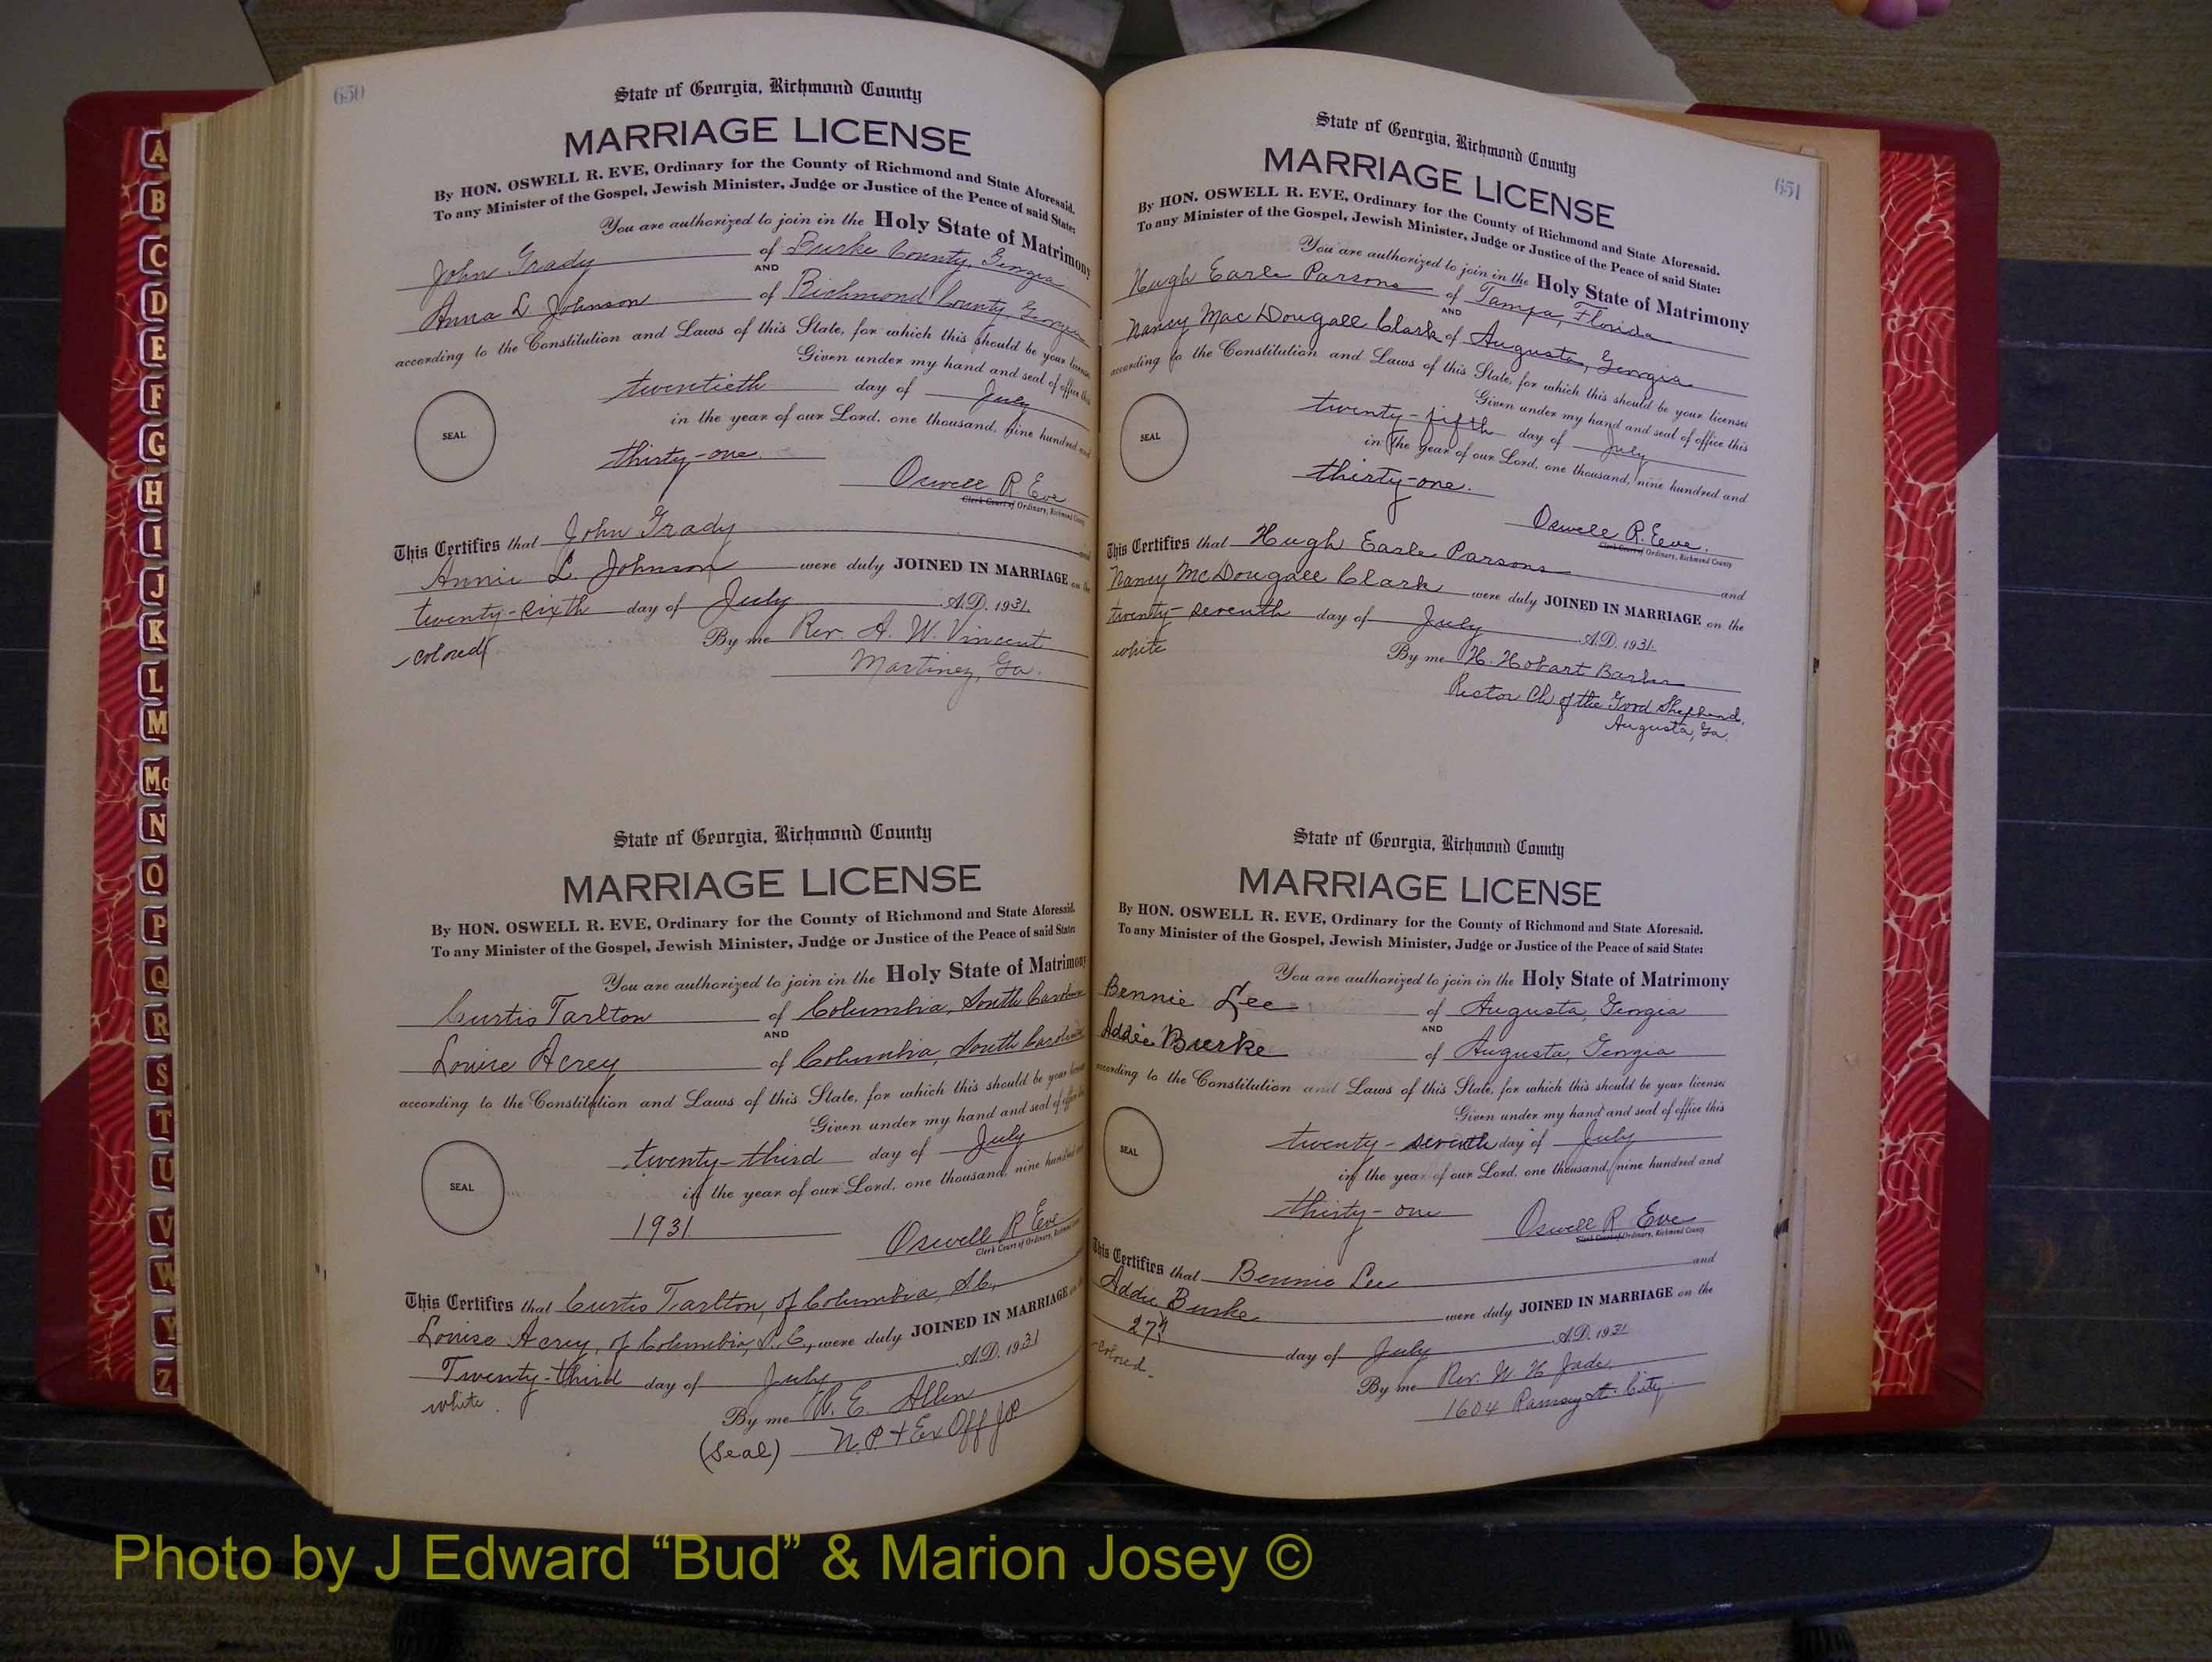 A
B
C
D
E
F
G
H
I
J
K
L
M
Mc
N
O
P
Q
R
S
T
U
V
W
Y
Z
650
State of Georgia, Richmond County
MARRIAGE LICENSE
By HON. OSWELL R. EVE, Ordinary for the County of Richmond and State Aforesaid.
To any Minister of the Gospel, Jewish Minister, Judge or Justice of the Peace of said State:
You are authorized to join in the Holy State of Matrimony
John Grady of Burke County, Georgia
AND
Anna L Johnson of Richmond County, Georgia
according to the Constitution and Laws of this State, for which this should be your license
Given under my hand and seal of office this
twentieth day of July
SEAL
in the year of our Lord, one thousand, nine hundred and
thirty-one.
Oswell R. Eve
Clerk Court of Ordinary, Richmond County
This Certifies that John Grady and
Annie L. Johnson were duly JOINED IN MARRIAGE on the
twenty-sixth day of July A.D. 1931.
colored
By me Rev. A. W. Vincent
Martinez, Ga.
State of Georgia, Richmond County
MARRIAGE LICENSE
By HON. OSWELL R. EVE, Ordinary for the County of Richmond and State Aforesaid.
To any Minister of the Gospel, Jewish Minister, Judge or Justice of the Peace of said State:
You are authorized to join in the Holy State of Matrimony
Curtis Tarlton of Columbia, South Carolina
AND
Louise Acrey of Columbia, South Carolina
according to the Constitution and Laws of this State, for which this should be your license
Given under my hand and seal of office this
twenty-third day of July
SEAL
in the year of our Lord, one thousand, nine hundred and
1931
Oswell R Eve
Clerk Court of Ordinary, Richmond County
This Certifies that Curtis Tarlton, of Columbia, S.C.,
Louise Acrey, of Columbia, S.C., were duly JOINED IN MARRIAGE on the
Twenty-third day of July A.D. 1931
white
By me R. E. Allen
(Seal) N.P. + Ex Off J.P.
651
State of Georgia, Richmond County
MARRIAGE LICENSE
By HON. OSWELL R. EVE, Ordinary for the County of Richmond and State Aforesaid.
To any Minister of the Gospel, Jewish Minister, Judge or Justice of the Peace of said State:
You are authorized to join in the Holy State of Matrimony
Hugh Earle Parsons of Tampa, Florida
AND
Nancy Mac Dougall Clark of Augusta, Georgia
according to the Constitution and Laws of this State, for which this should be your license
Given under my hand and seal of office this
twenty-fifth day of July
SEAL
in the year of our Lord, one thousand, nine hundred and
thirty-one.
Oswell R. Eve.
Clerk Court of Ordinary, Richmond County
This Certifies that Hugh Earle Parsons and
Nancy McDougall Clark were duly JOINED IN MARRIAGE on the
twenty-seventh day of July A.D. 1931.
white
By me H. Hobart Barber
Rector Ch of the Good Shepherd,
Augusta, Ga.
State of Georgia, Richmond County
MARRIAGE LICENSE
By HON. OSWELL R. EVE, Ordinary for the County of Richmond and State Aforesaid.
To any Minister of the Gospel, Jewish Minister, Judge or Justice of the Peace of said State:
You are authorized to join in the Holy State of Matrimony
Bennie Lee of Augusta, Georgia
AND
Addie Burke of Augusta, Georgia
according to the Constitution and Laws of this State, for which this should be your license
Given under my hand and seal of office this
twenty-seventh day of July
SEAL
in the year of our Lord, one thousand, nine hundred and
thirty-one
Oswell R Eve
Clerk Court of Ordinary, Richmond County
This Certifies that Bennie Lee and
Addie Burke were duly JOINED IN MARRIAGE on the
27th day of July A.D. 1931
colored
By me Rev. W. H.
1604 Ramsey St. City
Photo by J Edward “Bud” & Marion Josey ©